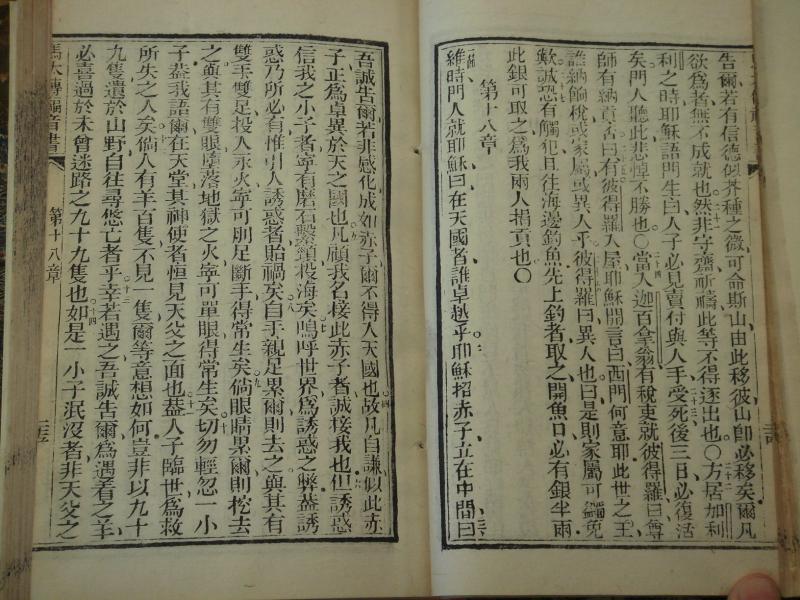 告爾若有信德似芥種之微可命斯山由此移彼山卽必移矣爾凡
欲爲者無不成就也然非守齋祈禱此等不得逐出也〇方居加利
利之時耶穌語門生曰人子必見賣付與人手受死後三日必復活
矣門人聽此悲悼不勝也〇當人迦百拿翁有稅吏就彼得羅曰尊
師有納貢否曰有彼得羅入屋耶穌開言曰西門何意耶此世之王
誰納餉稅或家屬或異人乎彼得羅曰異人也曰是則家屬可蠲免
歟誠恐有觸犯且往海邊釣魚先上釣者取之開魚口必有銀半兩
此銀可取之爲我兩人捐貢也〇
第十八章
維時門人就耶穌曰在天國者誰卓越乎耶穌招赤子立在中間曰
吾誠告爾若非感化成如赤子爾不得入天國也故凡自謙似此赤
子正爲卓異於天之國也凡顧我名接此赤子者誠接我也但誘惑
信我之小子者寧有磨石繫頸投海矣嗚呼世界爲誘惑之弊蓋誘
惑乃所必有惟引人誘惑者貽禍矣自手親足累爾則去之與其有
雙手雙足投人永火寧可刖足斷手得常生矣倘眼睛累爾則挖去
之與其有雙眼墮落地獄之火寧可單眼得常生矣切勿輕忽一小
子蓋我語爾在天堂其神使者恒見天父之面也蓋人子臨世爲救
所失之人矣倘人有羊百隻不見一隻爾等意想如何豈非以九十
九隻遺於山野自往尋悠亡者乎幸若遇之吾誠告爾爲遇者之羊
必喜過於未曾迷路之九十九隻也如是一小子泯沒者非天父之
馬太傳福音書 第十八章